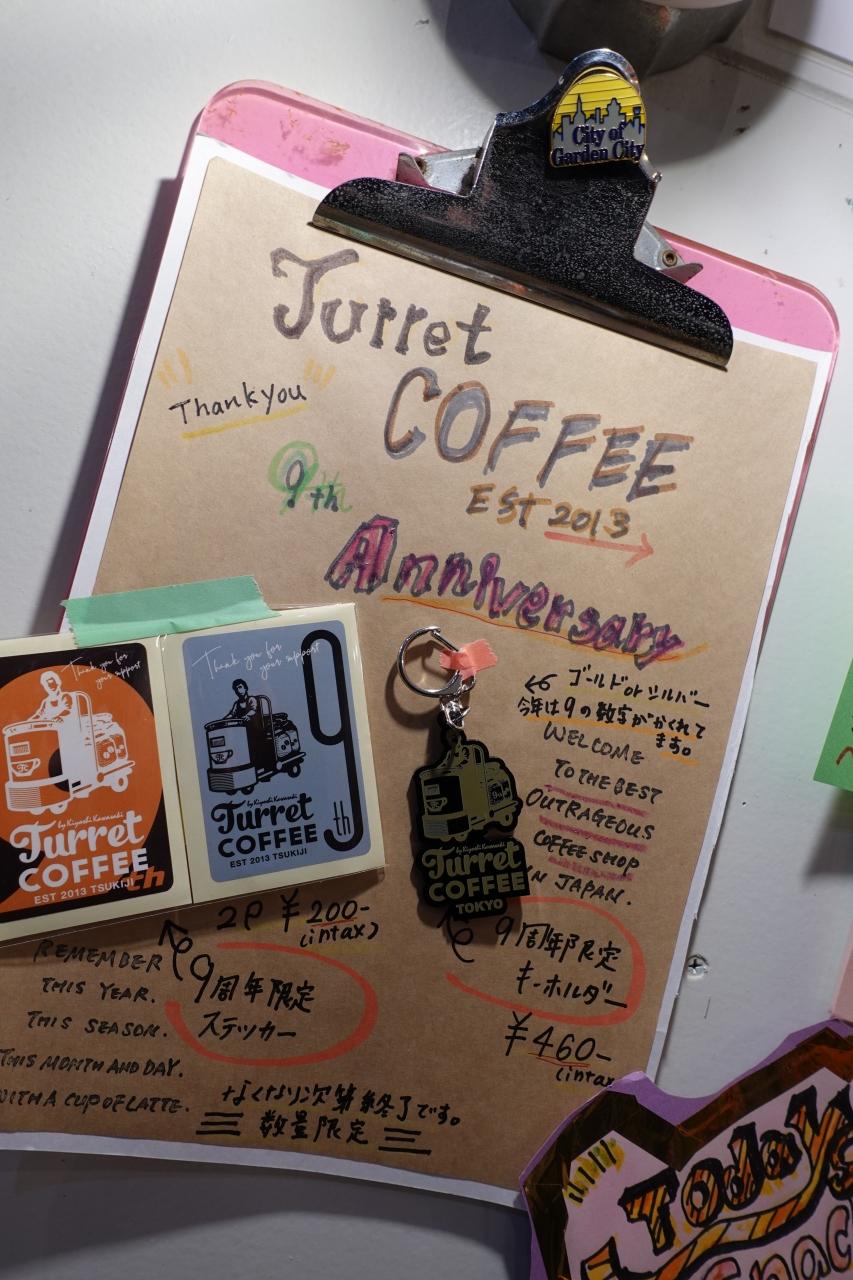 City of
Garden City
Turret
COFFEE
Thank you
9th
EST 2013
Anniversary
Thank you for
your support
by Kiyoshi Kawasaki
Turret
COFFEE
EST 2013 TSUKIJI
Thank you for
your support
9th
by Kiyoshi Kawasaki
Turret
COFFEE
EST 2013 TSUKIJI
by Kiyoshi Kawasaki
Turret
COFFEE
TOKYO
ゴールド or シルバー
今年は9の数字がかくれて
ます。
WELCOME
TO THE BEST
OUTRAGEOUS
COFFEE SHOP
IN JAPAN.
2P ¥200-
(intax)
9周年限定
ステッカー
9周年限定
キーホルダー
¥460-
(intax
REMEMBER
THIS YEAR.
THIS SEASON.
THIS MONTH AND DAY.
WITH A CUP OF LATTE.
なくなり次第終了です。
数量限定
Today's